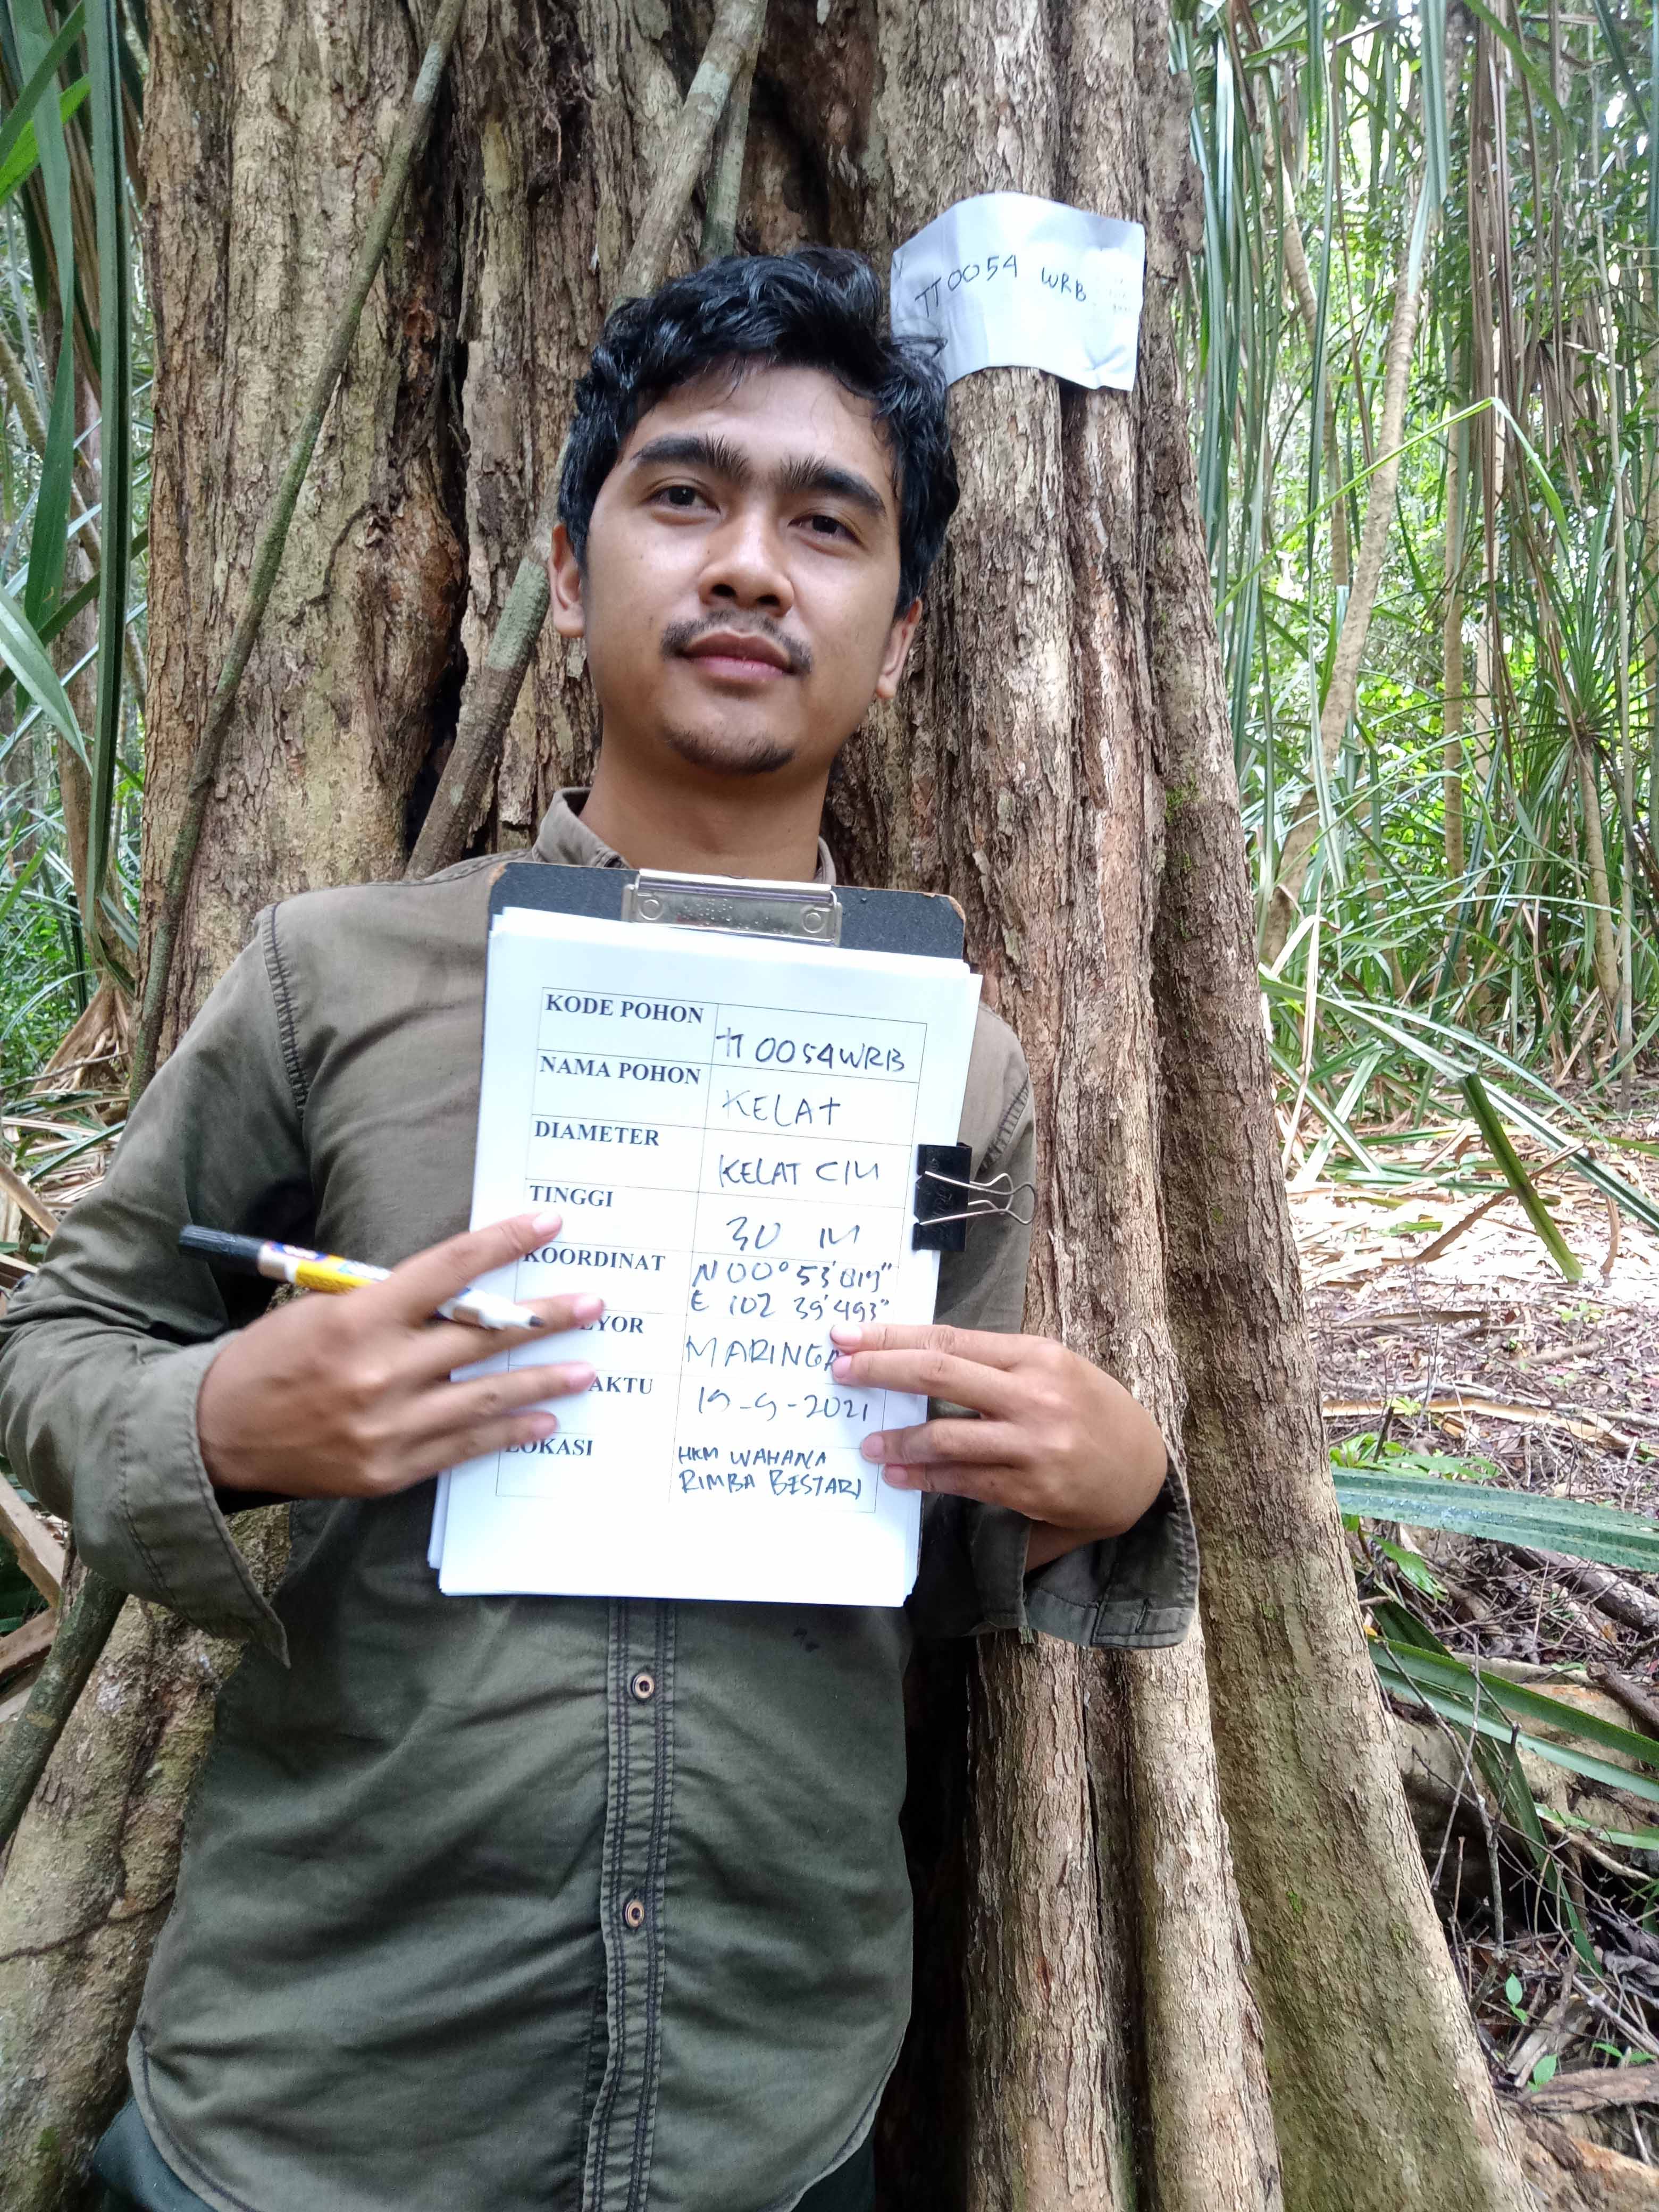 TT0054 WRB
KODE POHON
TT 0054WRB
NAMA POHON
KELAT
DIAMETER
KELAT CM
TINGGI
30 M
KOORDINAT
N 00° 53'
E 102 39'493"
MARINGA
19-9-2021
LOKASI
HKM WAHANA
RIMBA BESTARI